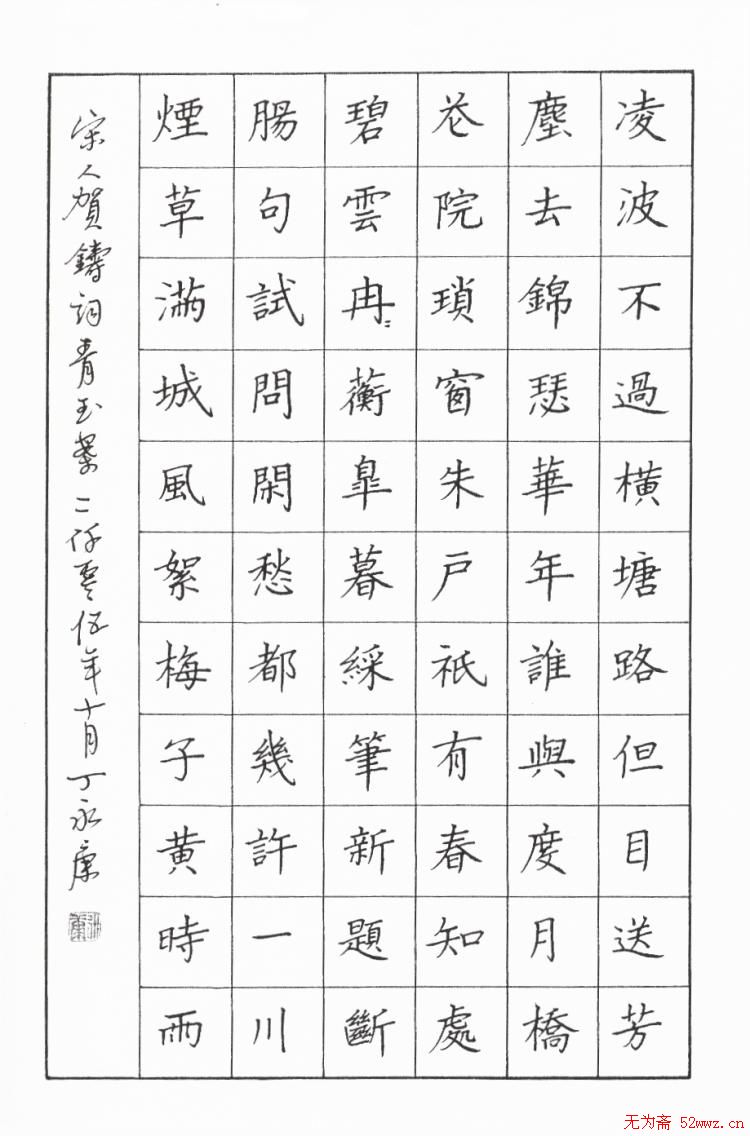 凌波不過橫塘路但目送芳
塵去錦瑟華年誰與度月橋
花院瑣窗朱戶祇有春知處
碧雲冉〻蘅皐暮綵筆新題斷
腸句試問閑愁都幾許一川
煙草滿城風絮梅子黄時雨
宋人賀鑄詞青玉案二仟零伍年十月丁永康
无为斋 52wwz.cn